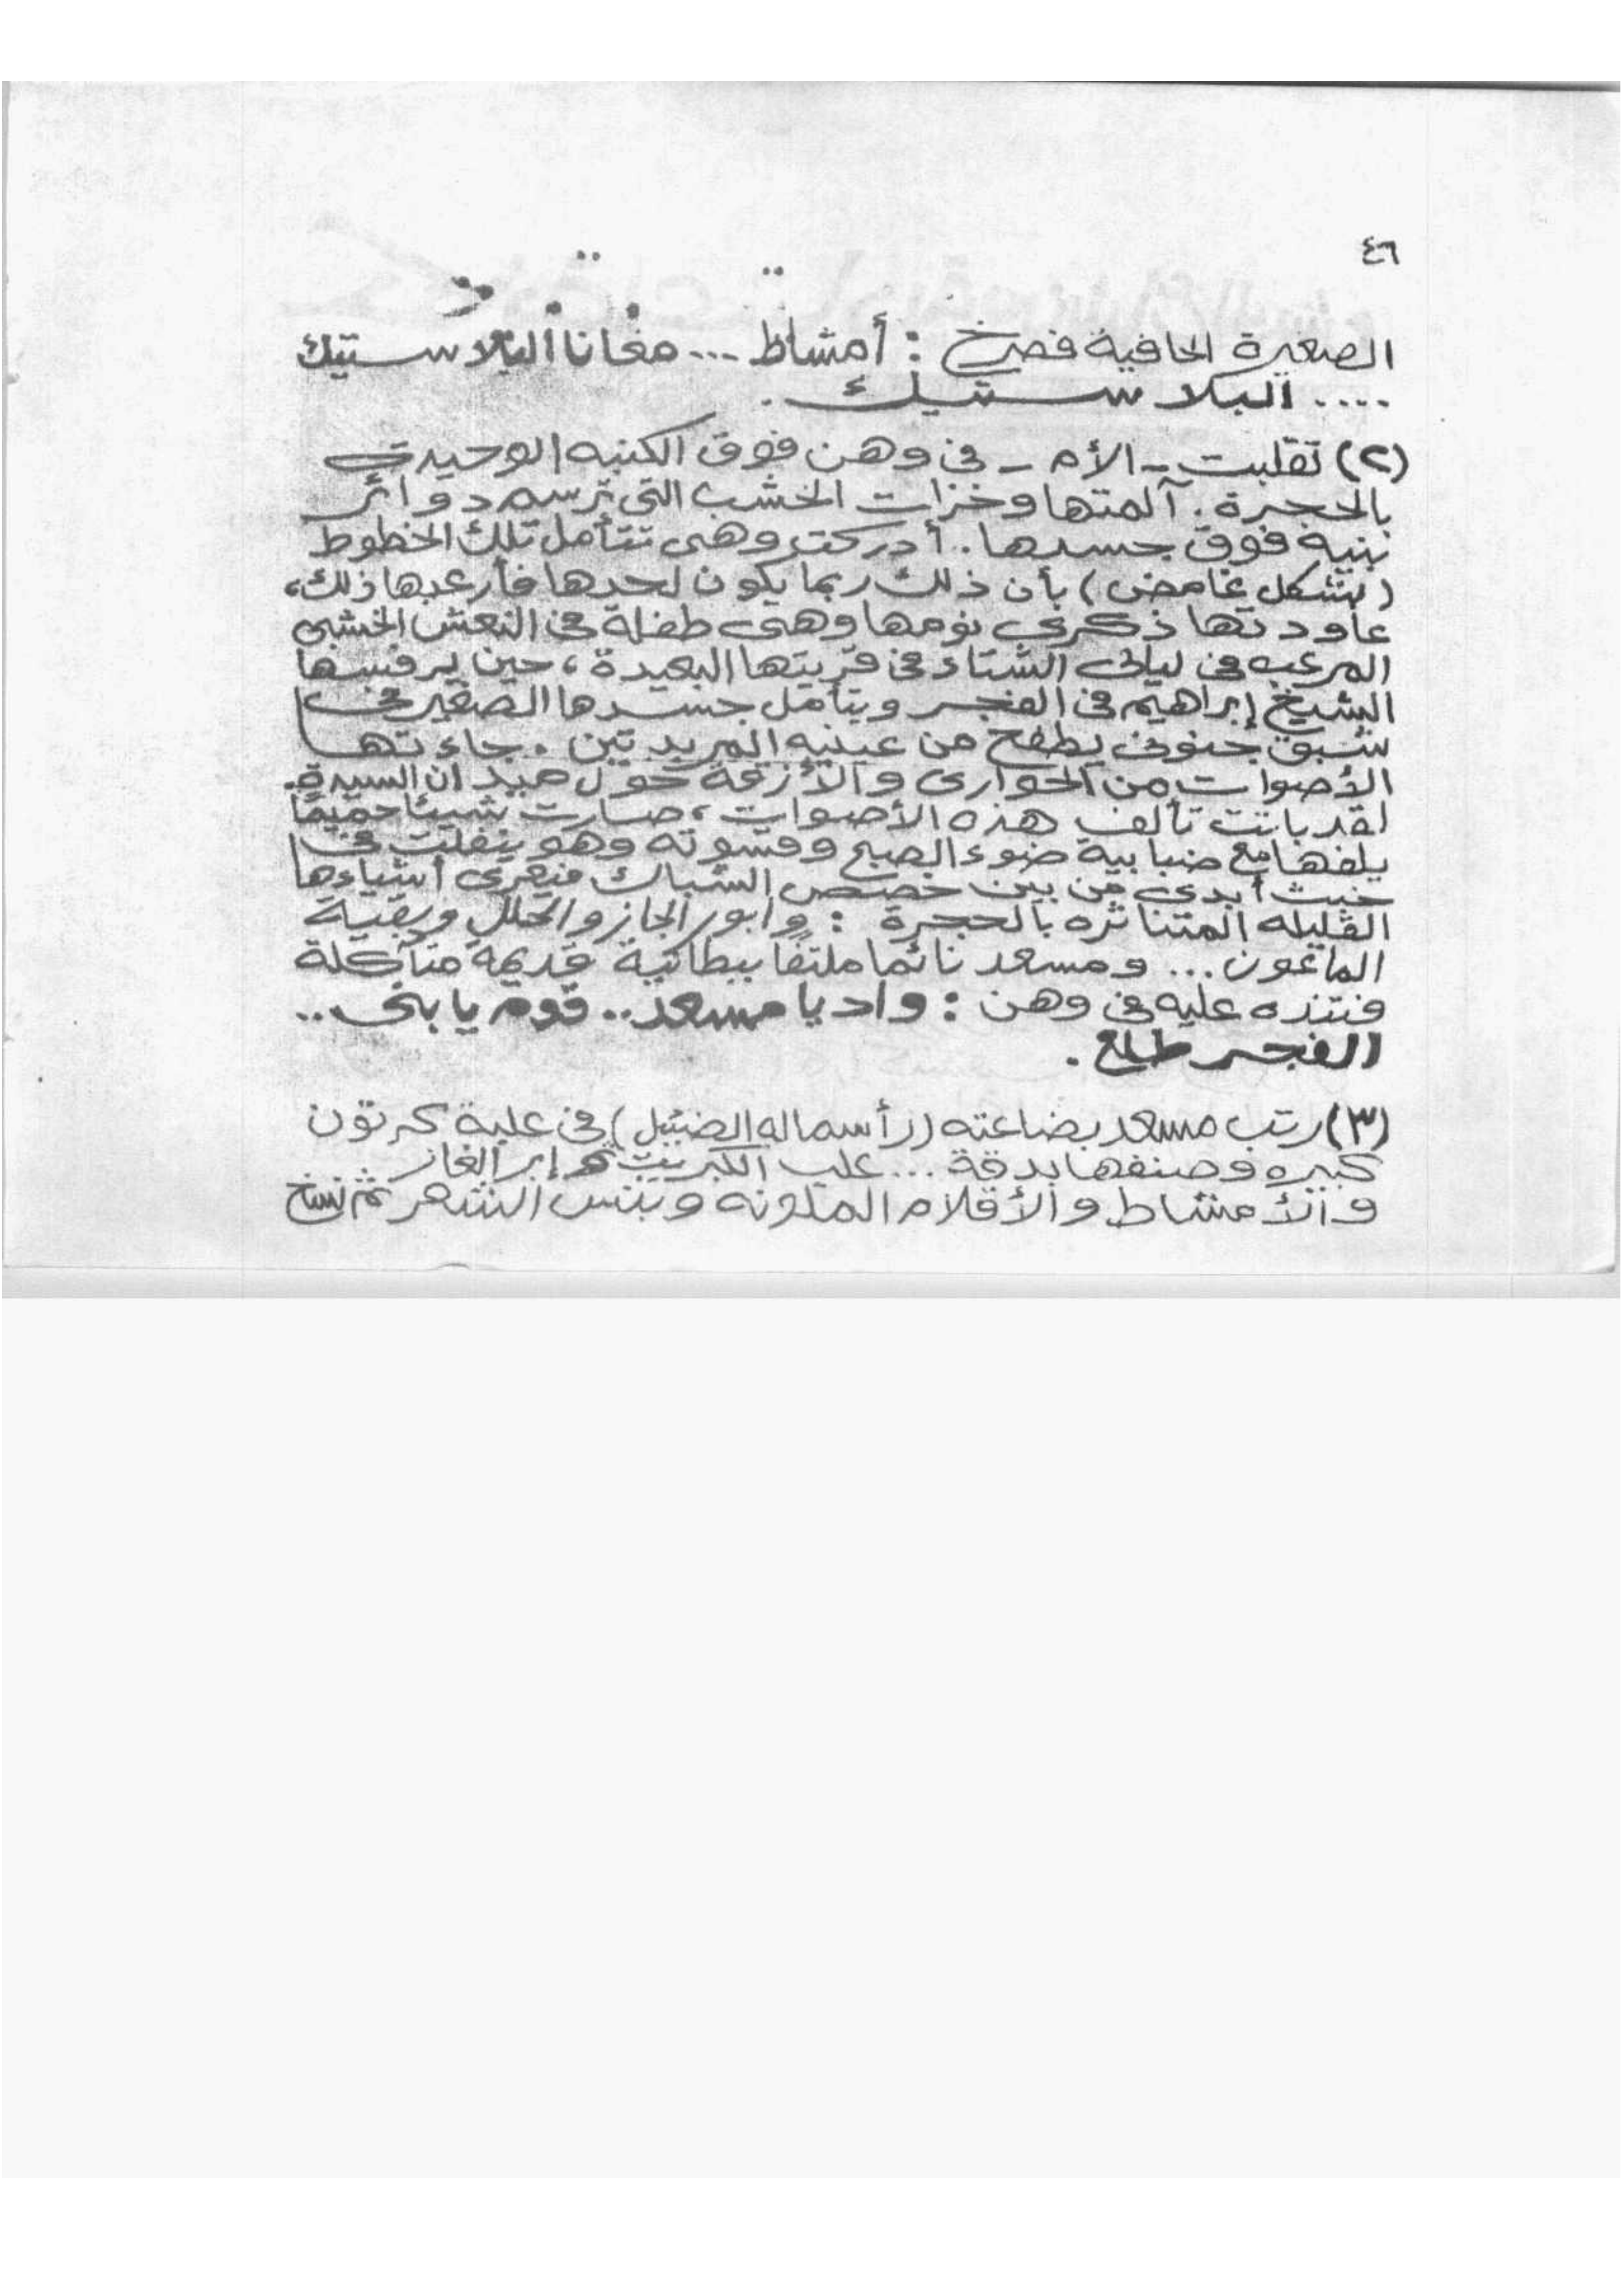 ٤٦
الصغيرة الحافية فصرخ : أمشاط ... معانا البلاستيك
.... البلاستيك .
(٢) تقلبت - الأم - فى وهن فوق الكنبه الوحيدة
بالحجرة . آلمتها وخزات الخشب التى ترسم دوائر
بنيه فوق جسدها .. أدركت وهى تتأمل تلك الخطوط
(بشكل غامض) بأن ذلك ربما يكون لحدها فأرعبها ذلك،
عاودتها ذكرى نومها وهى طفلة فى النعش الخشبى
المرعب فى ليالى الشتاء فى قريتها البعيدة ، حين يرفسها
الشيخ إبراهيم فى الفجر ويتأمل جسدها الصغير فى
شبق جنونى يطفح من عينيه المربدتين . جاءتها
الأصوات من الحوارى والأزقة حول ميدان السيدة.
لقد باتت تألف هذه الأصوات ، صارت شيئا حميمًا
يلفها مع ضبابية ضوء الصبح وقسوته وهو ينفلت فى
خبث أبدى من بين خصص الشباك فيعرى أشياءها
القليله المتناثره بالحجرة : وابور الجاز والحلل وبقية
الماعون ... ومسعد نائما ملتفًا ببطانية قديمة متآكلة
فتنده عليه فى وهن : واد يا مسعد .. قوم يا بنى ..
الفجر طلع .
(٣) رتب مسعد بضاعته (رأسماله الضئيل) فى علبة كرتون
كبيره وصنفها بدقة ... علب الكبريت وإبر الغاز
والأمشاط والأقلام الملونه وبنس الشعر ثم نسخ